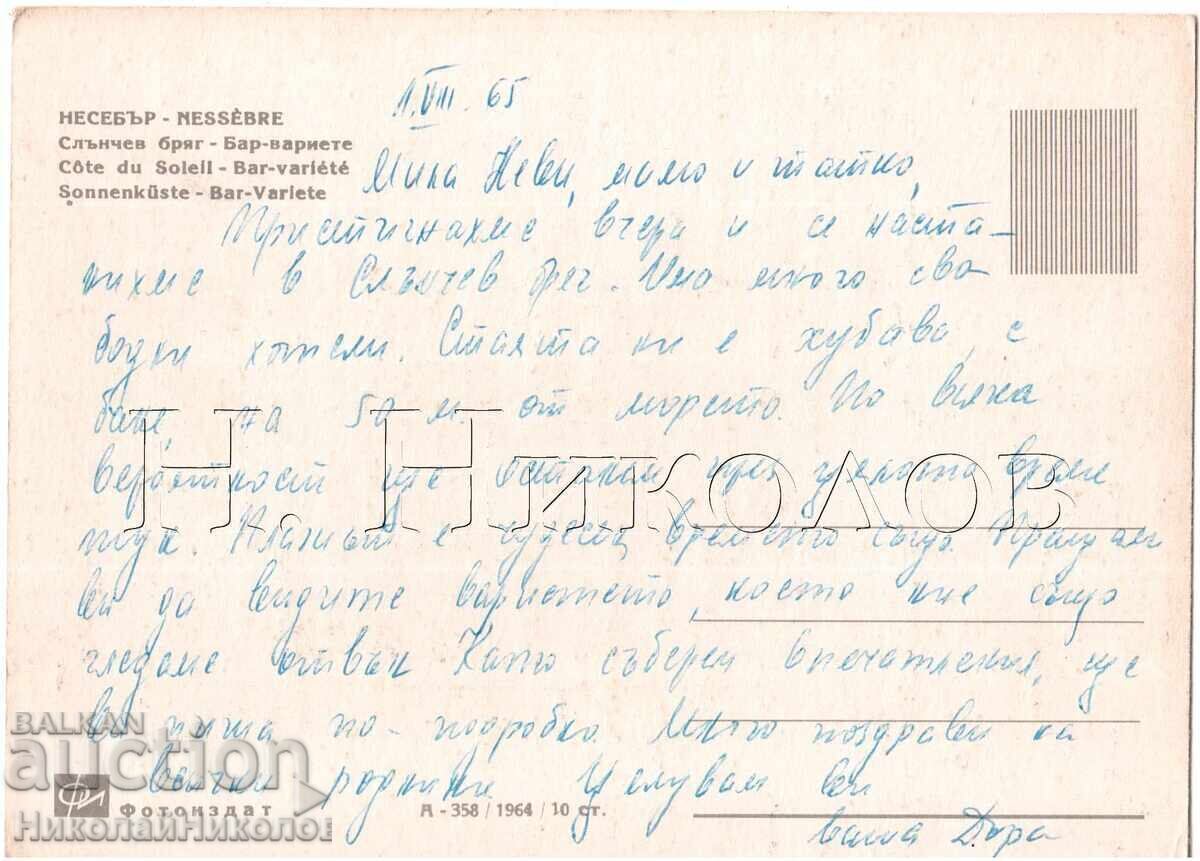 НЕСЕБЪР - NESSÈBRE
Слънчев бряг - Бар-вариете
Côte du Soleil - Bar-variété
Sonnenküste - Bar-Variete
1.VIII.65
Мила Неви, мамо и татко,
Пристигнахме вчера и се наста-
нихме в Слънчев бряг. Има много сво-
бодни хотели. Стаята ни е хубава, с
баня, на 50 м. от морето. По всяка
вероятност ще останем през цялото време
тук. Плажът е чудесен, времето също. Пращам
ви да видите вариетето, което ние също
гледаме отвън. Като съберем впечатления, ще
ви пиша по-подробно. Много поздрави на
всички роднини. Целувам ви
ваша Дора
Н. Николов
BALKAN
auction
НиколайНиколов
Фотоиздат
А - 358 / 1964 / 10 ст.